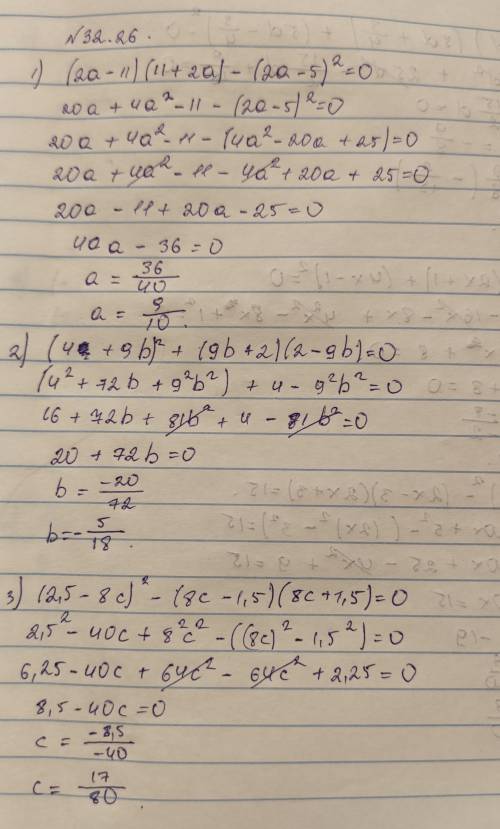 №32.26.
1) (2a-11)(11+2a)-(2a-5)²=0
20a+4a²-11-(2a-5)²=0
20a+4a²-11-(4a²-20a+25)=0
20a+4a²-11-4a²+20a+25=0
20a-11+20a-25=0
40a-36=0
a=36/40
a=9/10.
2) (4+9b)²+(9b+2)(2-9b)=0
(4²+72b+9²b²)+4-9²b²=0
16+72b+81b²+4-81b²=0
20+72b=0
b=-20/72
b=-5/18.
3) (2,5-8c)²-(8c-1,5)(8c+1,5)=0
2,5²-40c+8²c²-((8c)²-1,5²)=0
6,25-40c+64c²-64c²+2,25=0
8,5-40c=0
c=-8,5/-40
c=17/80.